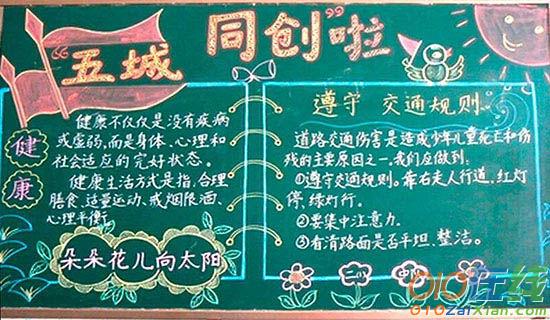 “五城同创”啦
健康
健康不仅仅是没有疾病
或虚弱，而是身体、心理和
社会适应的完好状态。
健康生活方式是指，合理
膳食、适量运动、戒烟限酒、
心理平衡。
朵朵花儿向太阳
遵守 交通规则
道路交通伤害是造成少年儿童死亡和伤
残的主要原因之一。我们应做到：
①遵守交通规则。靠右走人行道，红灯
停，绿灯行。
②要集中注意力。
③看清路面是否平坦、整洁。
010在线
010zaixian.com